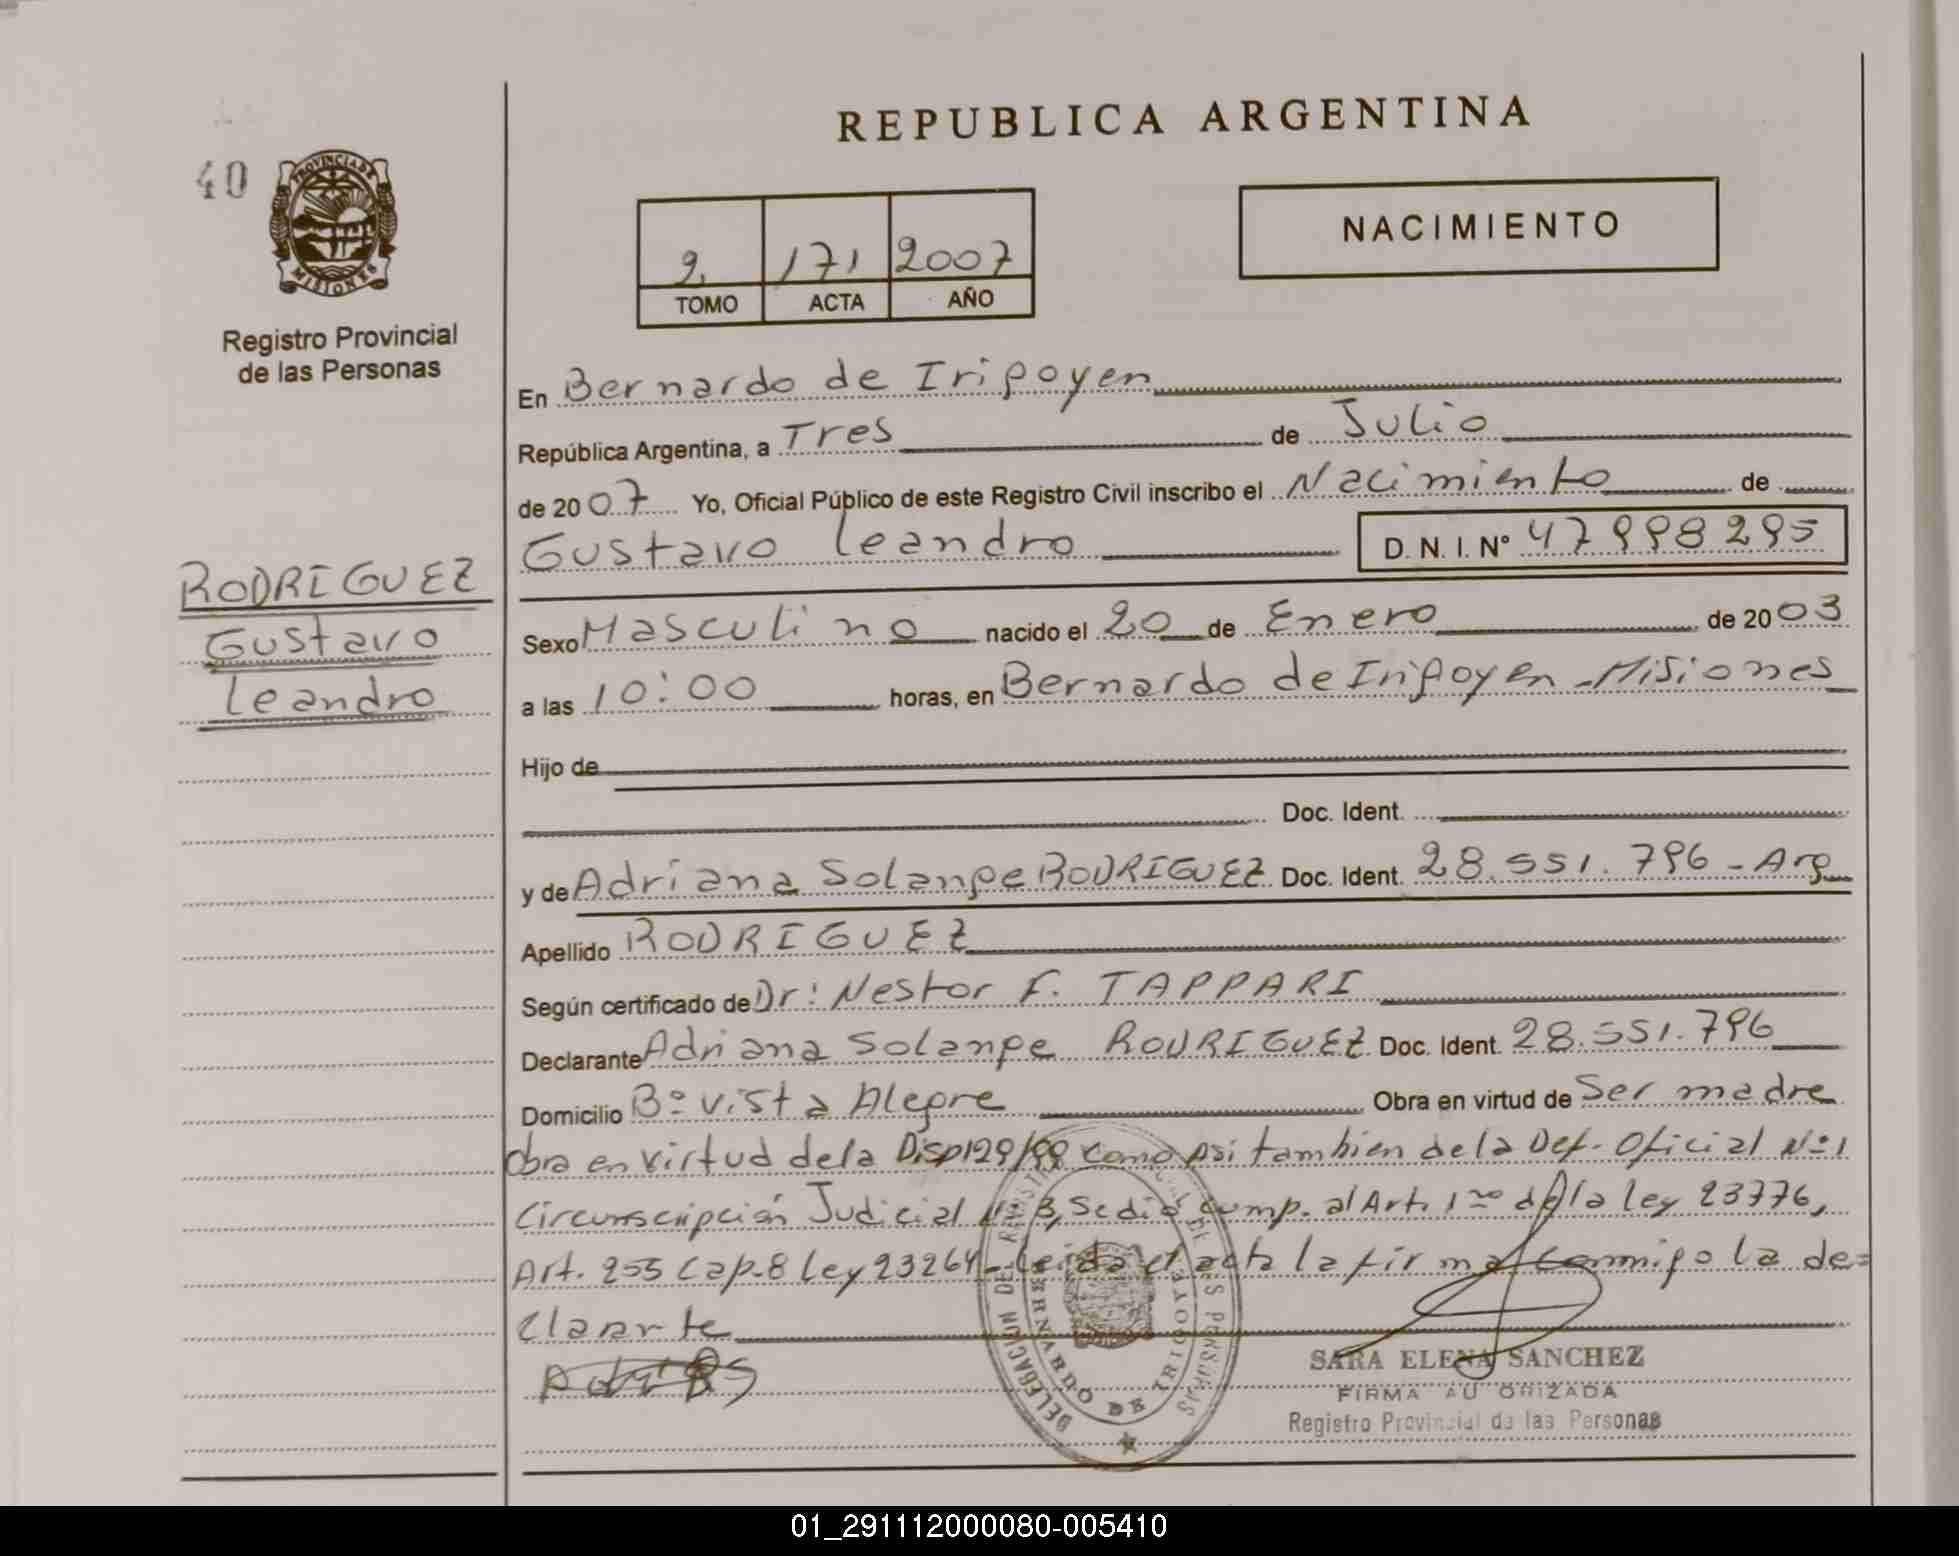 REPUBLICA ARGENTINA
40
PROVINCIA DE
MISIONES
Registro Provincial
de las Personas
2 171 2007
TOMO ACTA AÑO
NACIMIENTO
En Bernardo de Irigoyen
República Argentina, a Tres de Julio
de 2007 Yo, Oficial Público de este Registro Civil inscribo el Nacimiento de
Gustavo Leandro D. N. I. N° 47998295
RODRIGUEZ
Gustavo
Leandro
Sexo Masculino nacido el 20 de Enero de 2003
a las 10:00 horas, en Bernardo de Irigoyen - Misiones
Hijo de
Doc. Ident.
y de Adriana Solange RODRIGUEZ Doc. Ident. 28.551.796 - Arg
Apellido RODRIGUEZ
Según certificado de Dr: Nestor F. TAPPARI
Declarante Adriana Solange RODRIGUEZ Doc. Ident. 28.551.796
Domicilio B° Vista Alegre Obra en virtud de Ser madre
Obra en virtud de la Disp 129/99 como asi tambien de la Def. Oficial N° 1
Circunscripción Judicial N° 3, Se dió cump. al Art. 1ro de la ley 23776,
Art. 255 Cap. 8 Ley 23264 - Leida el acta la firma conmigo la de=
claarte
DELEGACION DEL REGISTRO DE LAS PERSONAS
BERNARDO DE IRIGOYEN
SARA ELENA SANCHEZ
FIRMA AUTORIZADA
Registro Provincial de las Personas
01_291112000080-005410